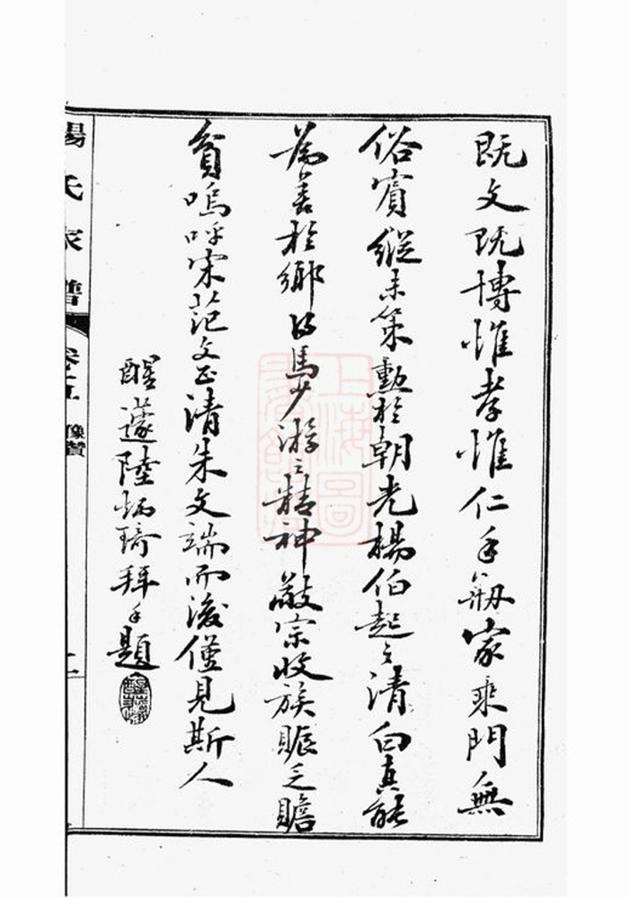 既文既博惟孝惟仁手剏家乘門無
俗賓縱未策勲於朝光楊伯起之清白真能
為善於鄉得馬少游之精神敬宗收族賑乏贍
貧嗚呼宋范文正清朱文端而後僅見斯人
醒蘧陸炳琦拜手題
楊氏家譜 卷五 像贊 二
上海圖